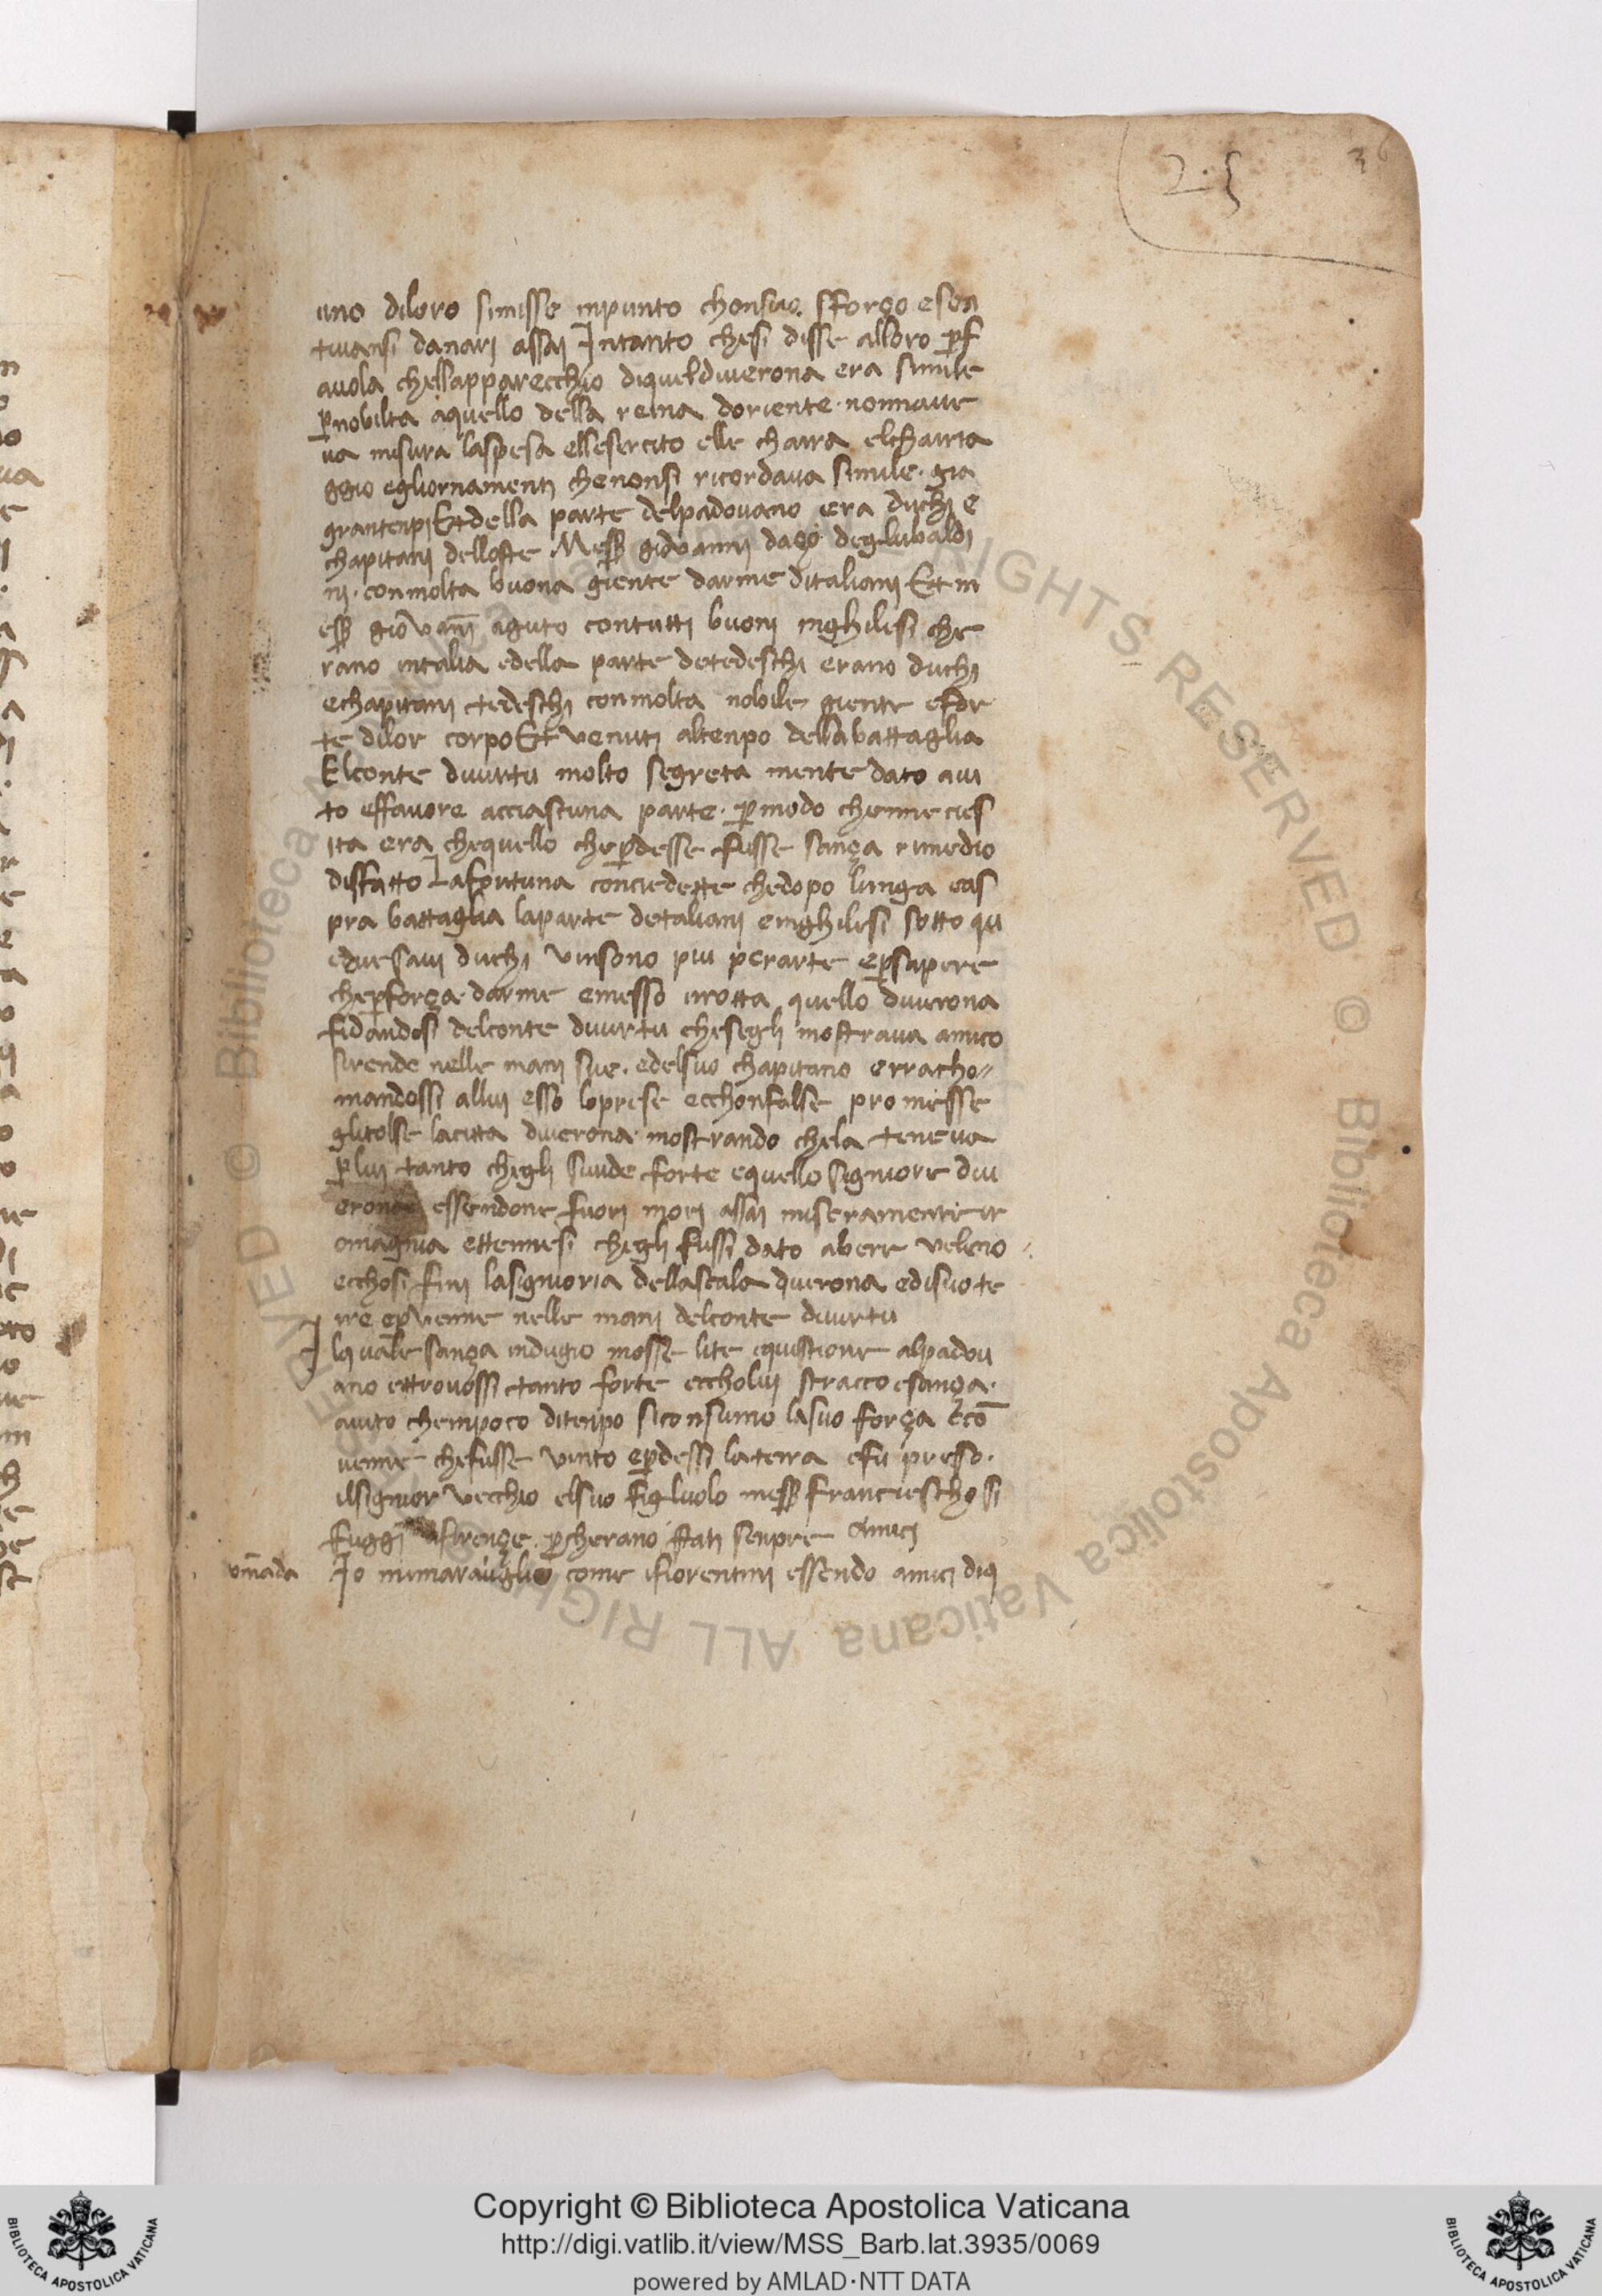 2·5
36
uno diloro simisse inpunto chonsuo sforço esen
tiuansi danari assai Intanto chesi disse alloro ꝑf
auola chellapparecchio diqueldiuerona era simile
ꝑnobilta aquello della reina doriente · nonnaue
ua misura laspesa ellesercito elle charra elchairia
ggio egliornamenti chenonsi ricordaua simile · gia
grantenpi Et della parte delpadouano era duchi e
chapitani delloste Messꝑ giovanni daço degliubaldi
ni · conmolta buona giente darme ditaliani Et m
essꝑ giōvani aguto contutti buoni inghilesi che
rano intalia edella parte detedeschi erano duchi
echapitani tedeschi conmolta nobile giente efor
te dilor corpo Et venuti altenpo della battaglia
Elconte diuirtu molto segreta mente dato aiu
to effauore acciascuna parte · ꝑmodo chennecies
ita era chequello cheꝑdesse fusse sança rimedio
disfatto Lafortuna conciedette chedopo lunga eas
pra battaglia laparte detaliani einghilesi sotto qu
edue saui duchi vinsono piu perarte eꝑsapere
cheꝑforça darme emesso irotta quello diuerona
fidandosi delconte diuirtu chesegli mostraua amico
sirende nelle mani sue · edelsuo chapitano erracho//
mandossi allui esso loprese ecchonfalse promesse
glitolse lacitta diuerona mostrando chela teneua
ꝑlui tanto chegli siuide forte equello signiore diu
erona essendone fuori mori assai miseramente ir
omagnia ettennesi chegli fussi dato abere veleno
ecchosi fini lasignioria dellascala diuerona edisuote
rre eꝑvenne nelle mani delconte diuirtu
Ilquale sança indugio mosse lite equistione alpadou
ano ettrouossi tanto forte eccholui stracco esança
aiuto chempoco ditenpo siconsumo lasuo força Ecō
uenne chefusse vinto eꝑdessi laterra efu presso ·
ilsignior vecchio elsuo figliuolo messꝑ francieschosi
fuggi afirençe ꝑcherano stati senpre amici
Io mimarauiglio come ifiorentini essendo amici diq
Copyright © Biblioteca Apostolica Vaticana
http://digi.vatlib.it/view/MSS_Barb.lat.3935/0069
powered by AMLAD·NTT DATA